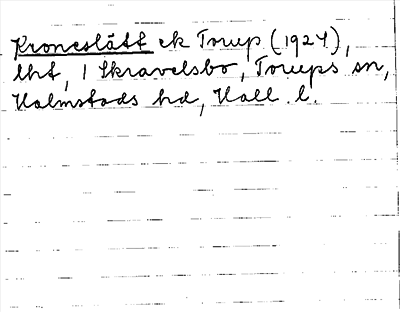 Kroneslätt ek Torup (1924),
lht, 1 Skravelsbo, Torups sn,
Halmstads hd, Hall. l.